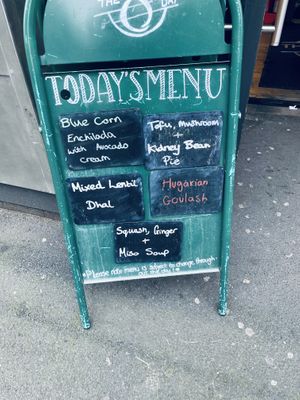 THE
DAY
TODAY'S MENU
Blue Corn
Enchilada
with Avocado
cream
Tofu, Mushroom
+
Kidney Bean
Pie
Mixed Lentil
Dhal
Hugarian
Goulash
Squash, Ginger
+
Miso Soup
*Please note menu is subject to change through
out the day!*